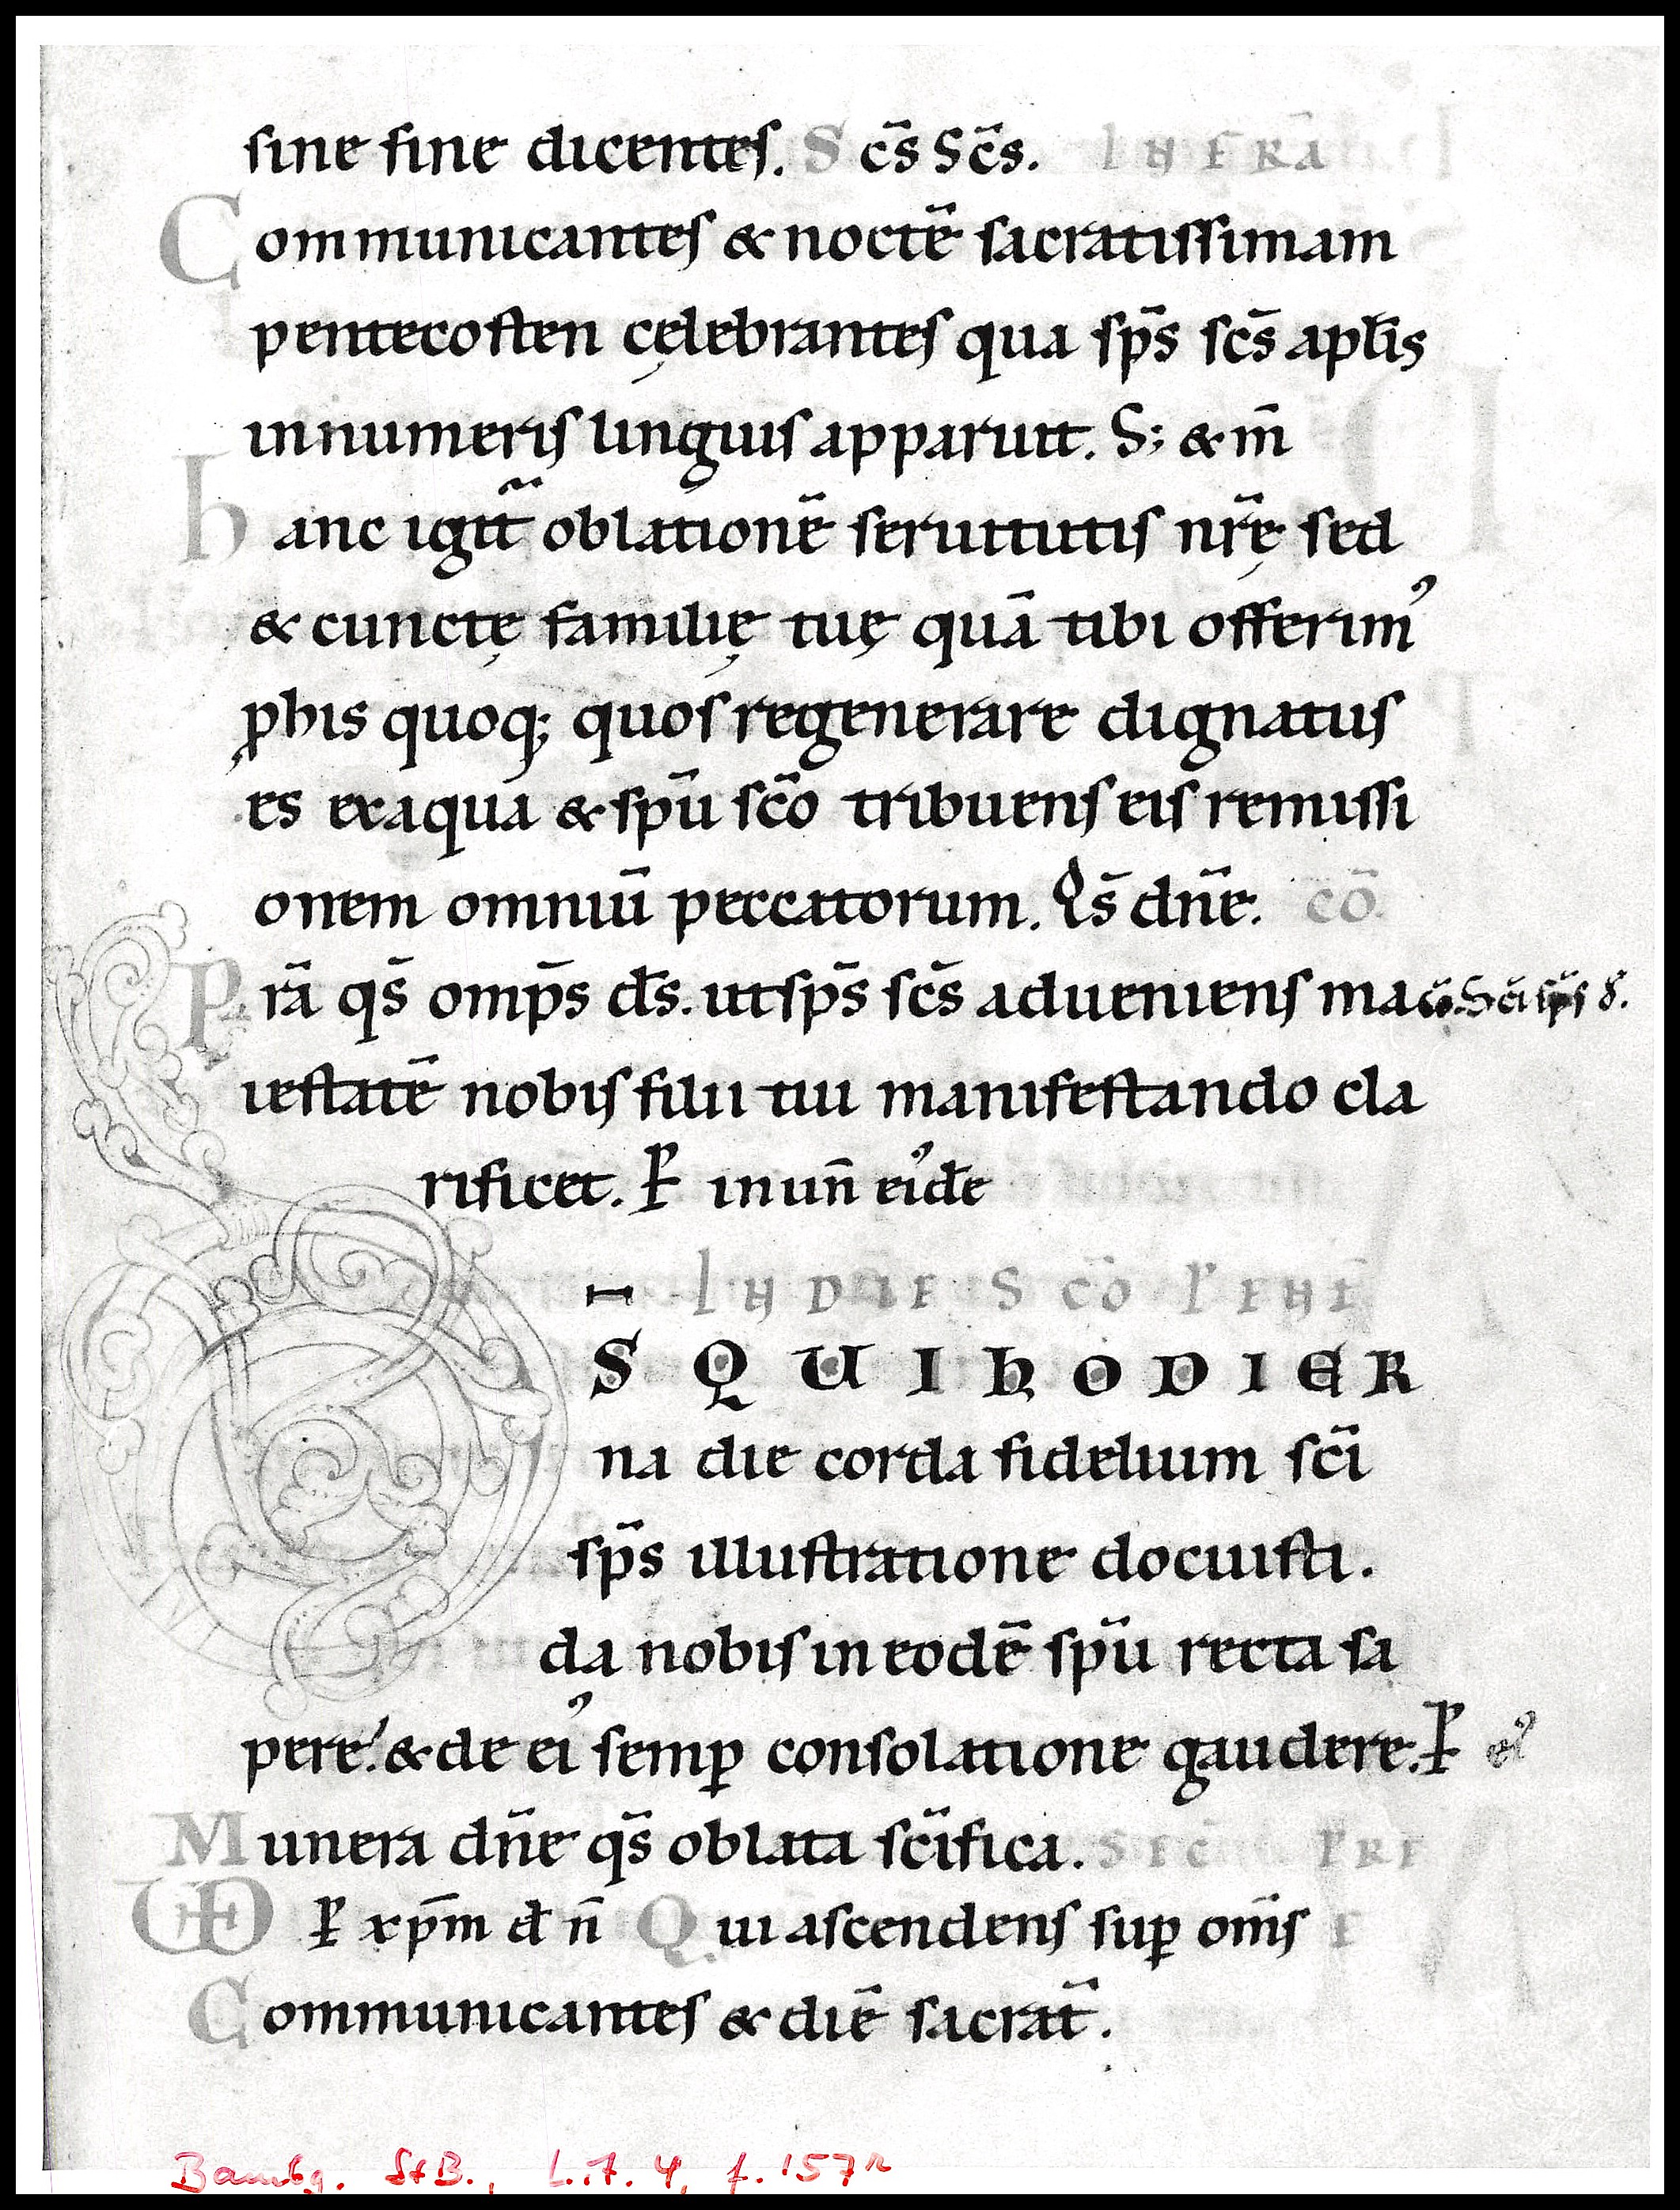 sine fine dicentes. S cs̄ Scs̄. INFRĀ
Communicantes & noctē sacratissimam
pentecosten cęlebrantes qua sps̄ scs̄ aplis̄
innumeris linguis apparuit. S; & m̄
hanc igit̃ oblationē seruitutis nr̄ę sed
& cunctę familię tuę quā tibi offerim᾿
ꝓ his quoq; quos regenerare dignatus
es ex aqua & spū scō tribuens eis remissi
onem omniū peccatorum. Qs̄ dn̄e. CŌ
P rā qs̄ omps̄ ds̄. ut sps̄ scs̄ adueniens ma
iestatē nobis filii tui manifestando cla
rificet. P in un̄ ei᾿de
IN DIE SCŌ PENT
DS QUI HODIER
na die corda fidelium scī
sps̄ illustratione docuisti.
da nobis in eodē spū recta sa
pere. & de ei᾿ semꝑ consolatione gaudere. P ei᾿
Munera dn̄e qs̄ oblata scīfica. SEC PRE
VD P xp̄m d n̄ Qui ascendens suꝑ om̄s
Communicantes & diē sacrat̄.
Bambg. StB., Lit. 4, f. 157r